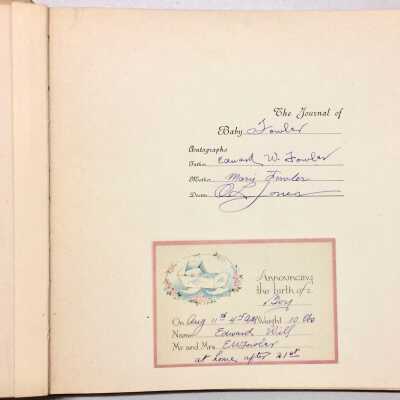 The Journal of
Baby Fowler
Autographs
Father Edward W. Fowler
Mother Marie Fowler
Doctor Jones
Announcing
the birth of a
Boy
On Aug 11th Weight 10 lbs
Name Edward
Mr and Mrs. E W Fowler
at home after 21st